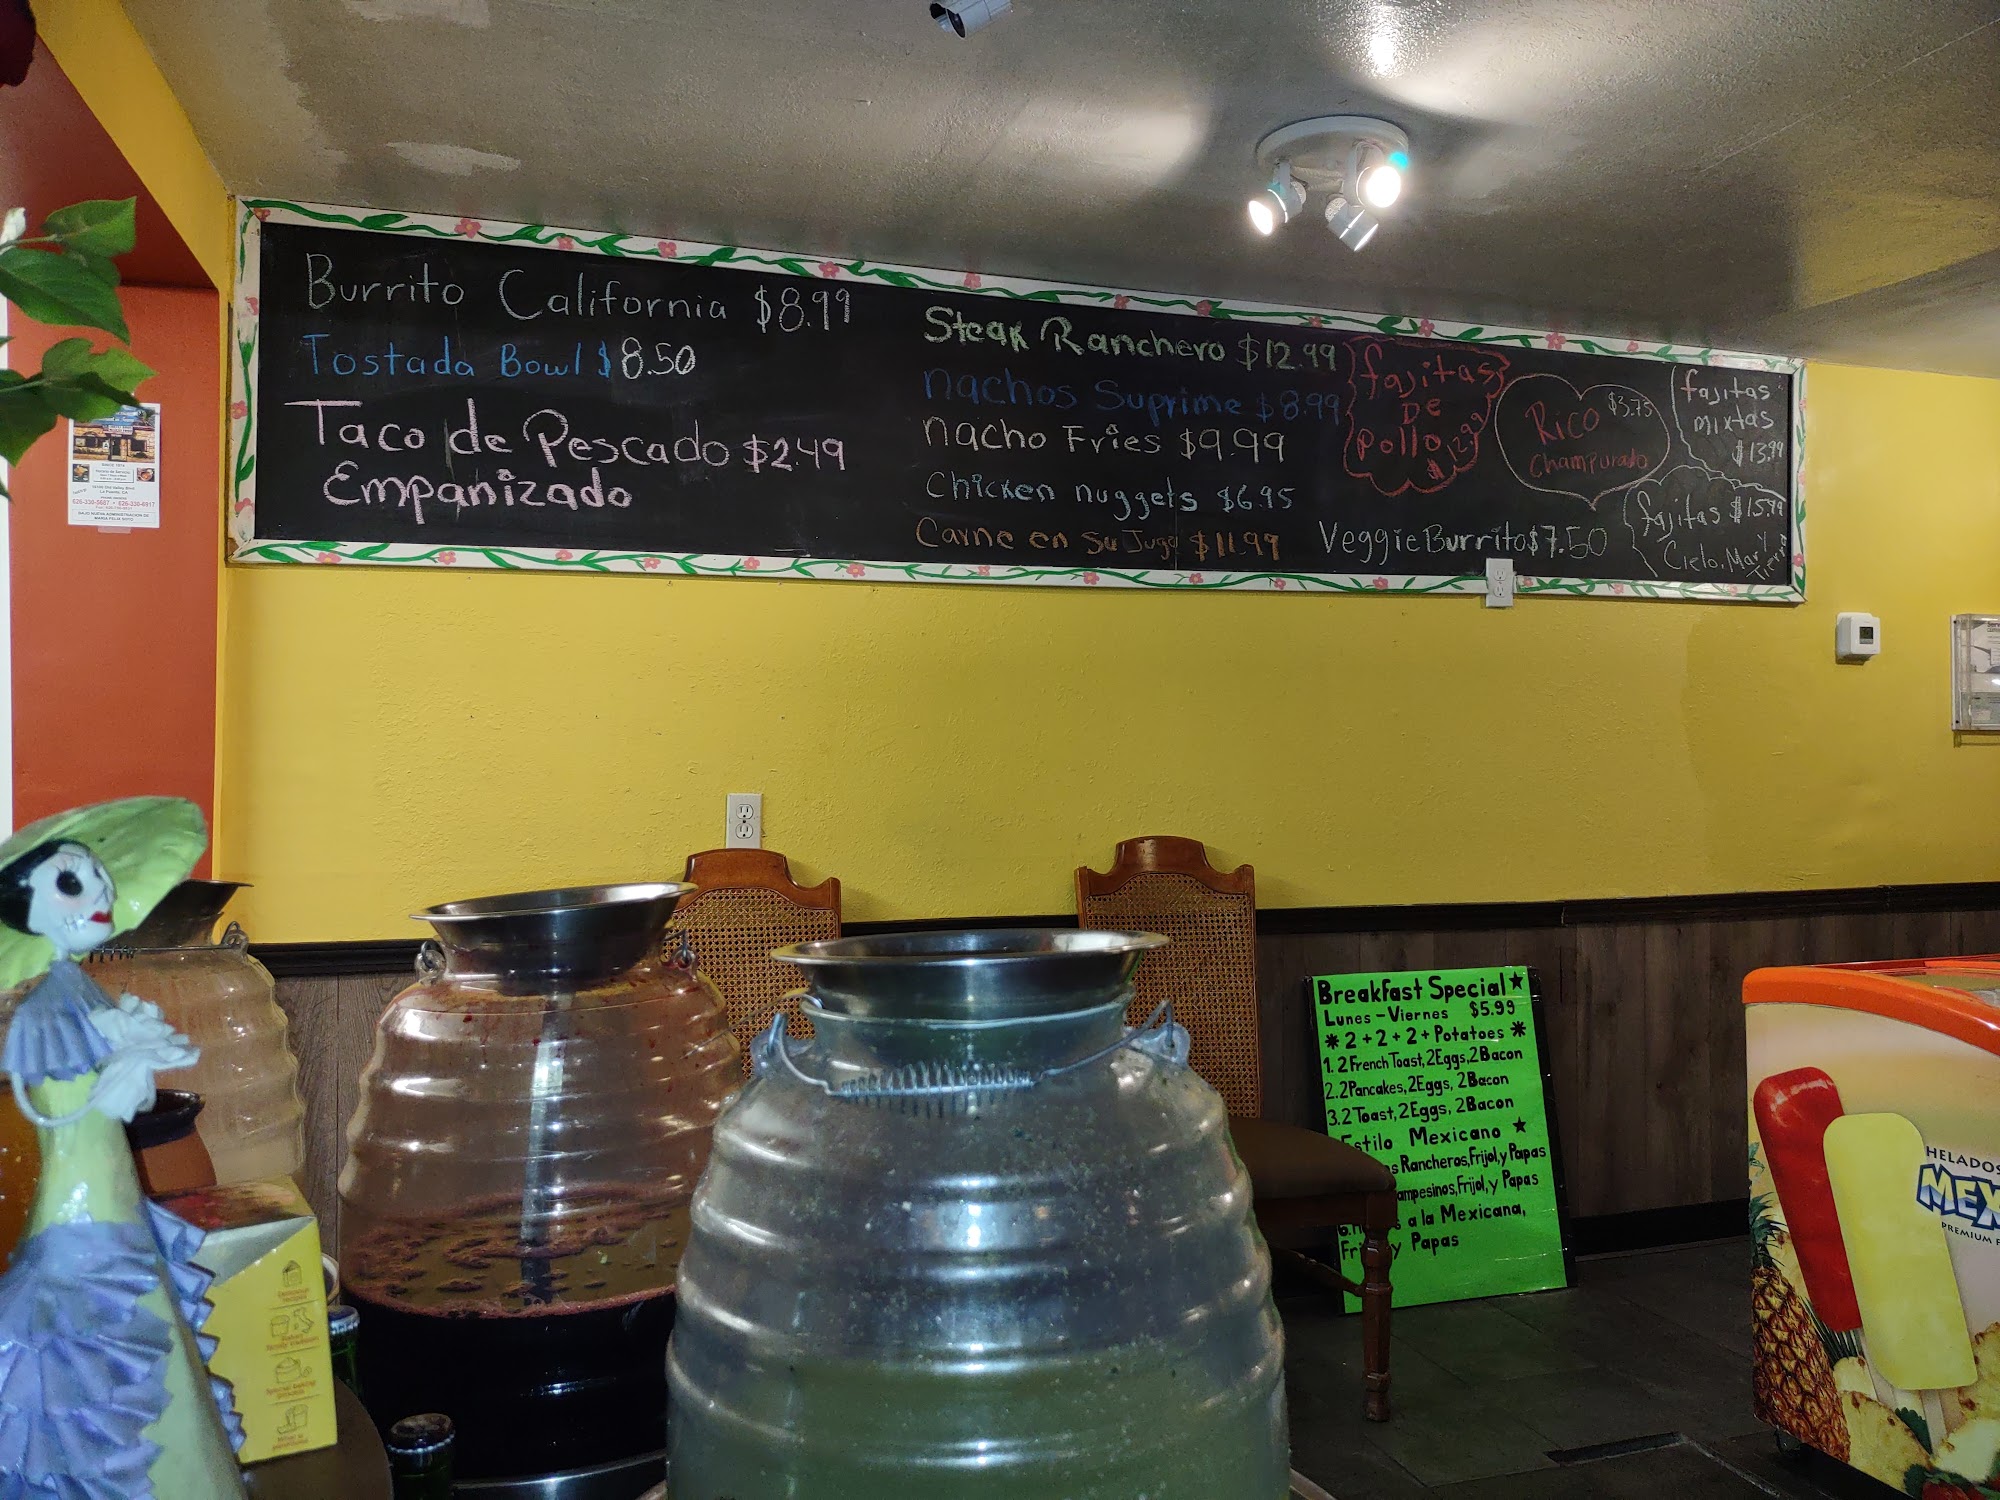 Burrito California $8.99
Tostada Bowl $8.50
Taco de Pescado $2.49
Empanizado
Steak Ranchero $12.99
nachos Suprime $8.99
nacho Fries $9.99
Chicken nuggets $6.95
Carne en Su Jugo $11.99
fajitas
De
pollo
$12.99
Rico $3.75
Champurado
fajitas
mixtas
$13.99
Veggie Burrito $7.50
fajitas $15.99
Cielo, Mar y
Tierra
SINCE 1974
La Puente, CA
626-330-5667 • 626-330-6917
BAJO NUEVA ADMINISTRACION DE
MARIA FELIX SOTO
Breakfast Special ★
Lunes - Viernes $5.99
* 2 + 2 + 2 + Potatoes *
1. 2 French Toast, 2 Eggs, 2 Bacon
2. 2 Pancakes, 2 Eggs, 2 Bacon
3. 2 Toast, 2 Eggs, 2 Bacon
Estilo Mexicano ★
Rancheros, Frijol, y Papas
Frijol, y Papas
a la Mexicana,
y Papas
HELADOS
MEX
PREMIUM